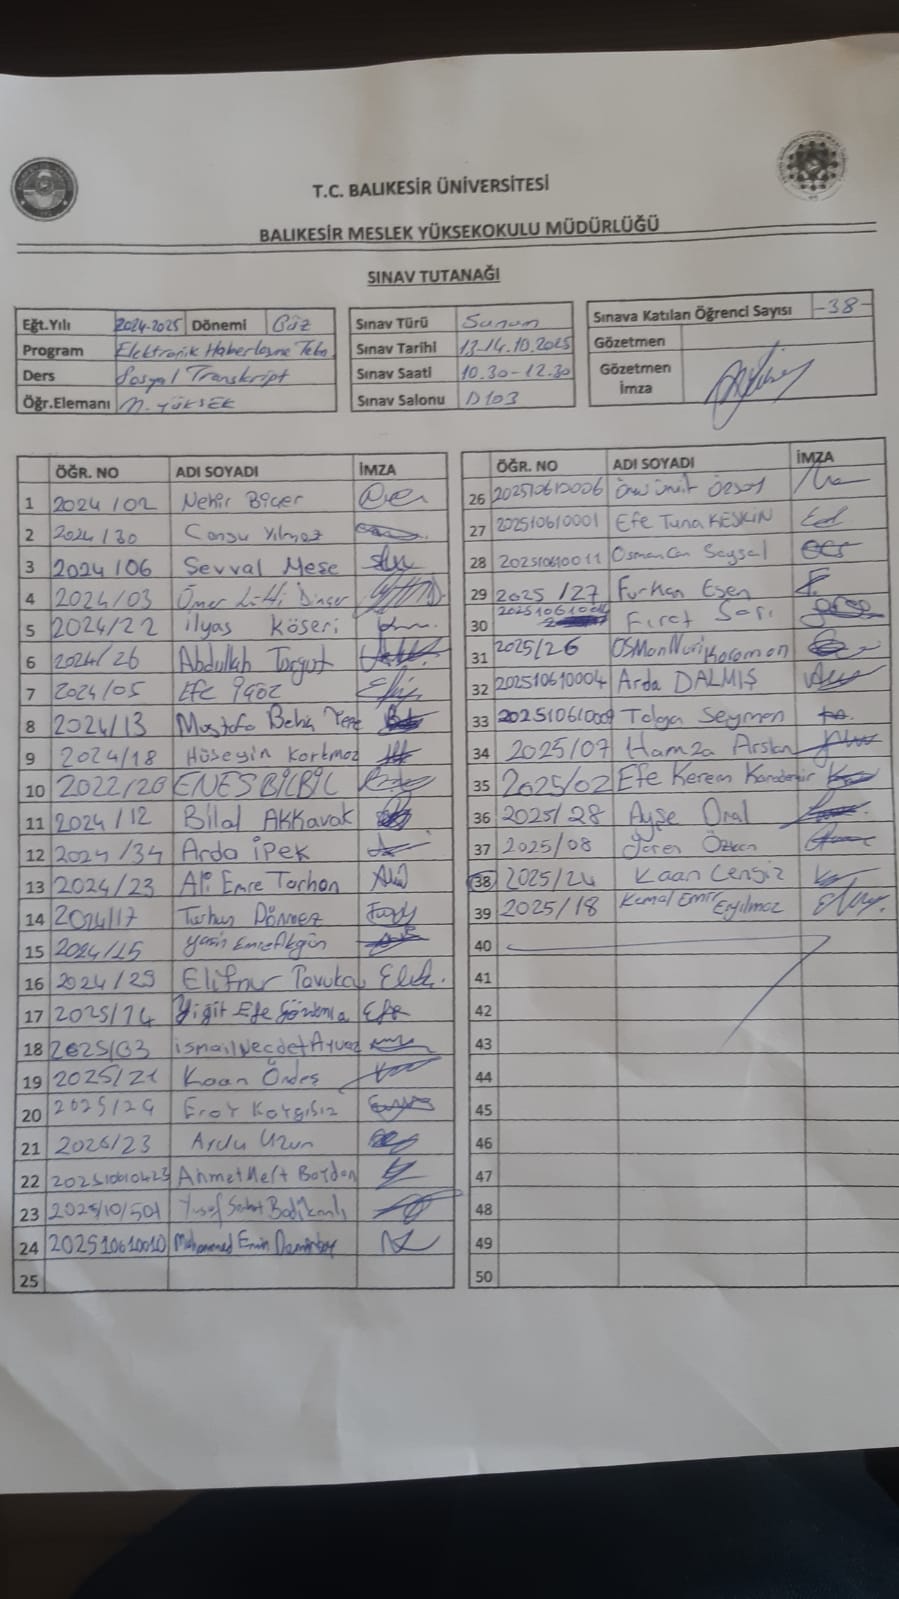 T.C. BALIKESİR ÜNİVERSİTESİ
BALIKESİR MESLEK YÜKSEKOKULU MÜDÜRLÜĞÜ
SINAV TUTANAĞI
Eğt.Yılı 2024-2025 Dönemi Güz
Program Elektronik Haberleşme Tekn.
Ders Sosyal Transkript
Öğr.Elemanı N. YÜKSEK
Sınav Türü Sunum
Sınav Tarihi 13-14.10.2025
Sınav Saati 10.30-12.30
Sınav Salonu D103
Sınava Katılan Öğrenci Sayısı -38-
Gözetmen
Gözetmen İmza
ÖĞR. NO ADI SOYADI İMZA
1 2024/02 Nehir Biçer
2 2024/30 Cansu Yılmaz
3 2024/06 Şevval Meşe
4 2024/03 Ömer Lütfi Dinçer
5 2024/22 ilyas Köseri
6 2024/26 Abdullah Turgut
7 2024/05 Efe
8 2024/13 Mustafa Beha
9 2024/18 Hüseyin Korkmaz
10 2022/20 ENES BİLBİL
11 2024/12 Bilal AKKavak
12 2024/34 Arda ipek
13 2024/23 Ali Emre Tarhan
14 2024/17 Turhan Dönmez
15 2024/15 Yasin Emre Akgün
16 2024/29 Elifnur
17 2025/14 Yiğit Efe
18 2025/03 ismail Necdet Ayvaz
19 2025/21 Kaan Öndeş
20 2025/29 Eray Kaygısız
21 2025/23 Arda Uzun
22 202510610423 Ahmet Mert Baydan
23 2025/10/501 Yusuf
24 202510610010 Muhammed Emin Demirbay
25
ÖĞR. NO ADI SOYADI İMZA
26 202510610006 Ümit Özsoy
27 202510610001 Efe Tuna KESKİN
28 202510610011 Osman Can Soysal
29 2025/27 Furkan Esen
30 Fırat Sarı
31 2025/26 OSMan Nuri Karaman
32 202510610004 Arda DALMIŞ
33 202510610009 Tolga Seymen
34 2025/07 Hamza Arslan
35 2025/02 Efe Kerem Karademir
36 2025/28 Ayşe Oral
37 2025/08 Özkan
38 2025/24 Kaan Cengiz
39 2025/18 Kemal Emir Eryılmaz
40
41
42
43
44
45
46
47
48
49
50